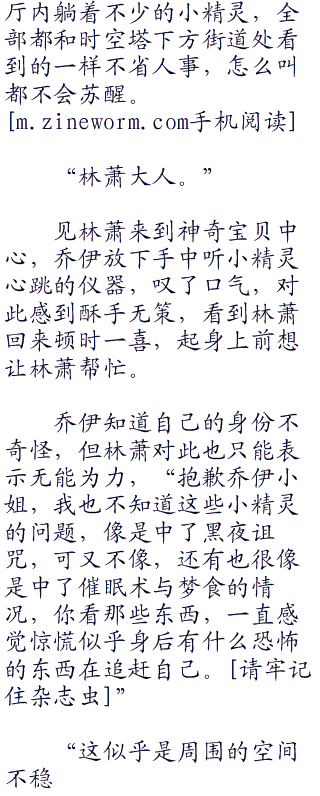 厅内躺着不少的小精灵，全
部都和时空塔下方街道处看
到的一样不省人事，怎么叫
都不会苏醒。
[m.zineworm.com手机阅读]
“林萧大人。”
见林萧来到神奇宝贝中
心，乔伊放下手中听小精灵
心跳的仪器，叹了口气，对
此感到酥手无策，看到林萧
回来顿时一喜，起身上前想
让林萧帮忙。
乔伊知道自己的身份不
奇怪，但林萧对此也只能表
示无能为力，“抱歉乔伊小
姐，我也不知道这些小精灵
的问题，像是中了黑夜诅
咒，可又不像，还有也很像
是中了催眠术与梦食的情
况，你看那些东西，一直感
觉惊慌似乎身后有什么恐怖
的东西在追赶自己。[请牢记
住杂志虫]”
“这似乎是周围的空间
不稳